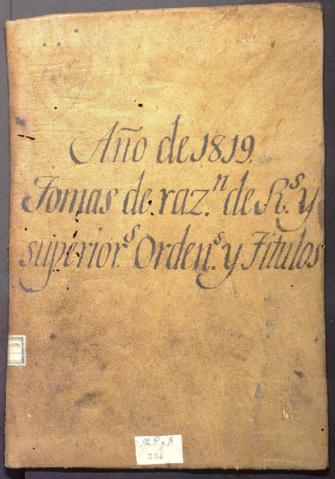 Año de 1819.
Tomas de raz.n de R.s y
superior.s Orden.s y Titulos
M. P. y
226